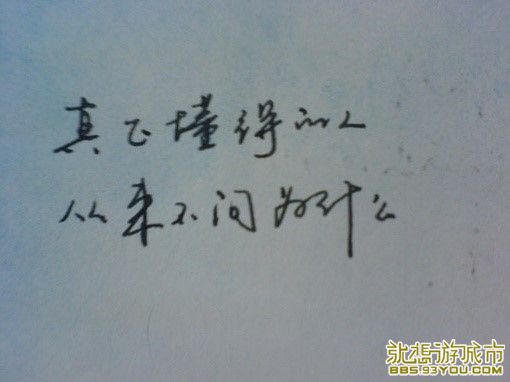 真正懂得的人
从来不问为什么
就想游城市
BBS.93YOU.COM